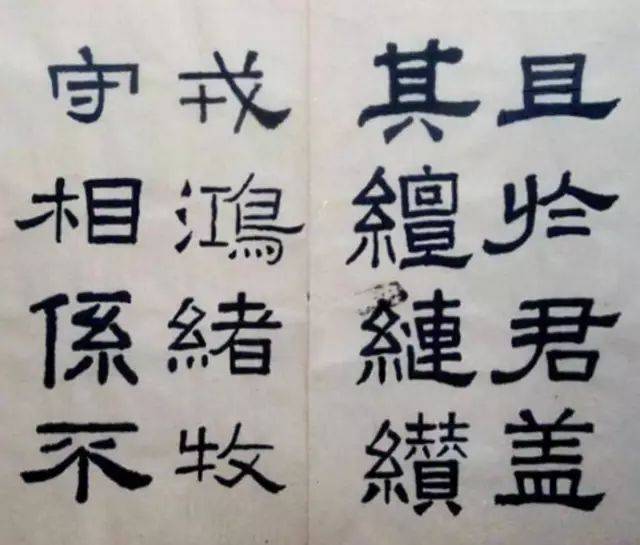 且於君盖
其繵縺纘
戎鴻緒牧
守相係不